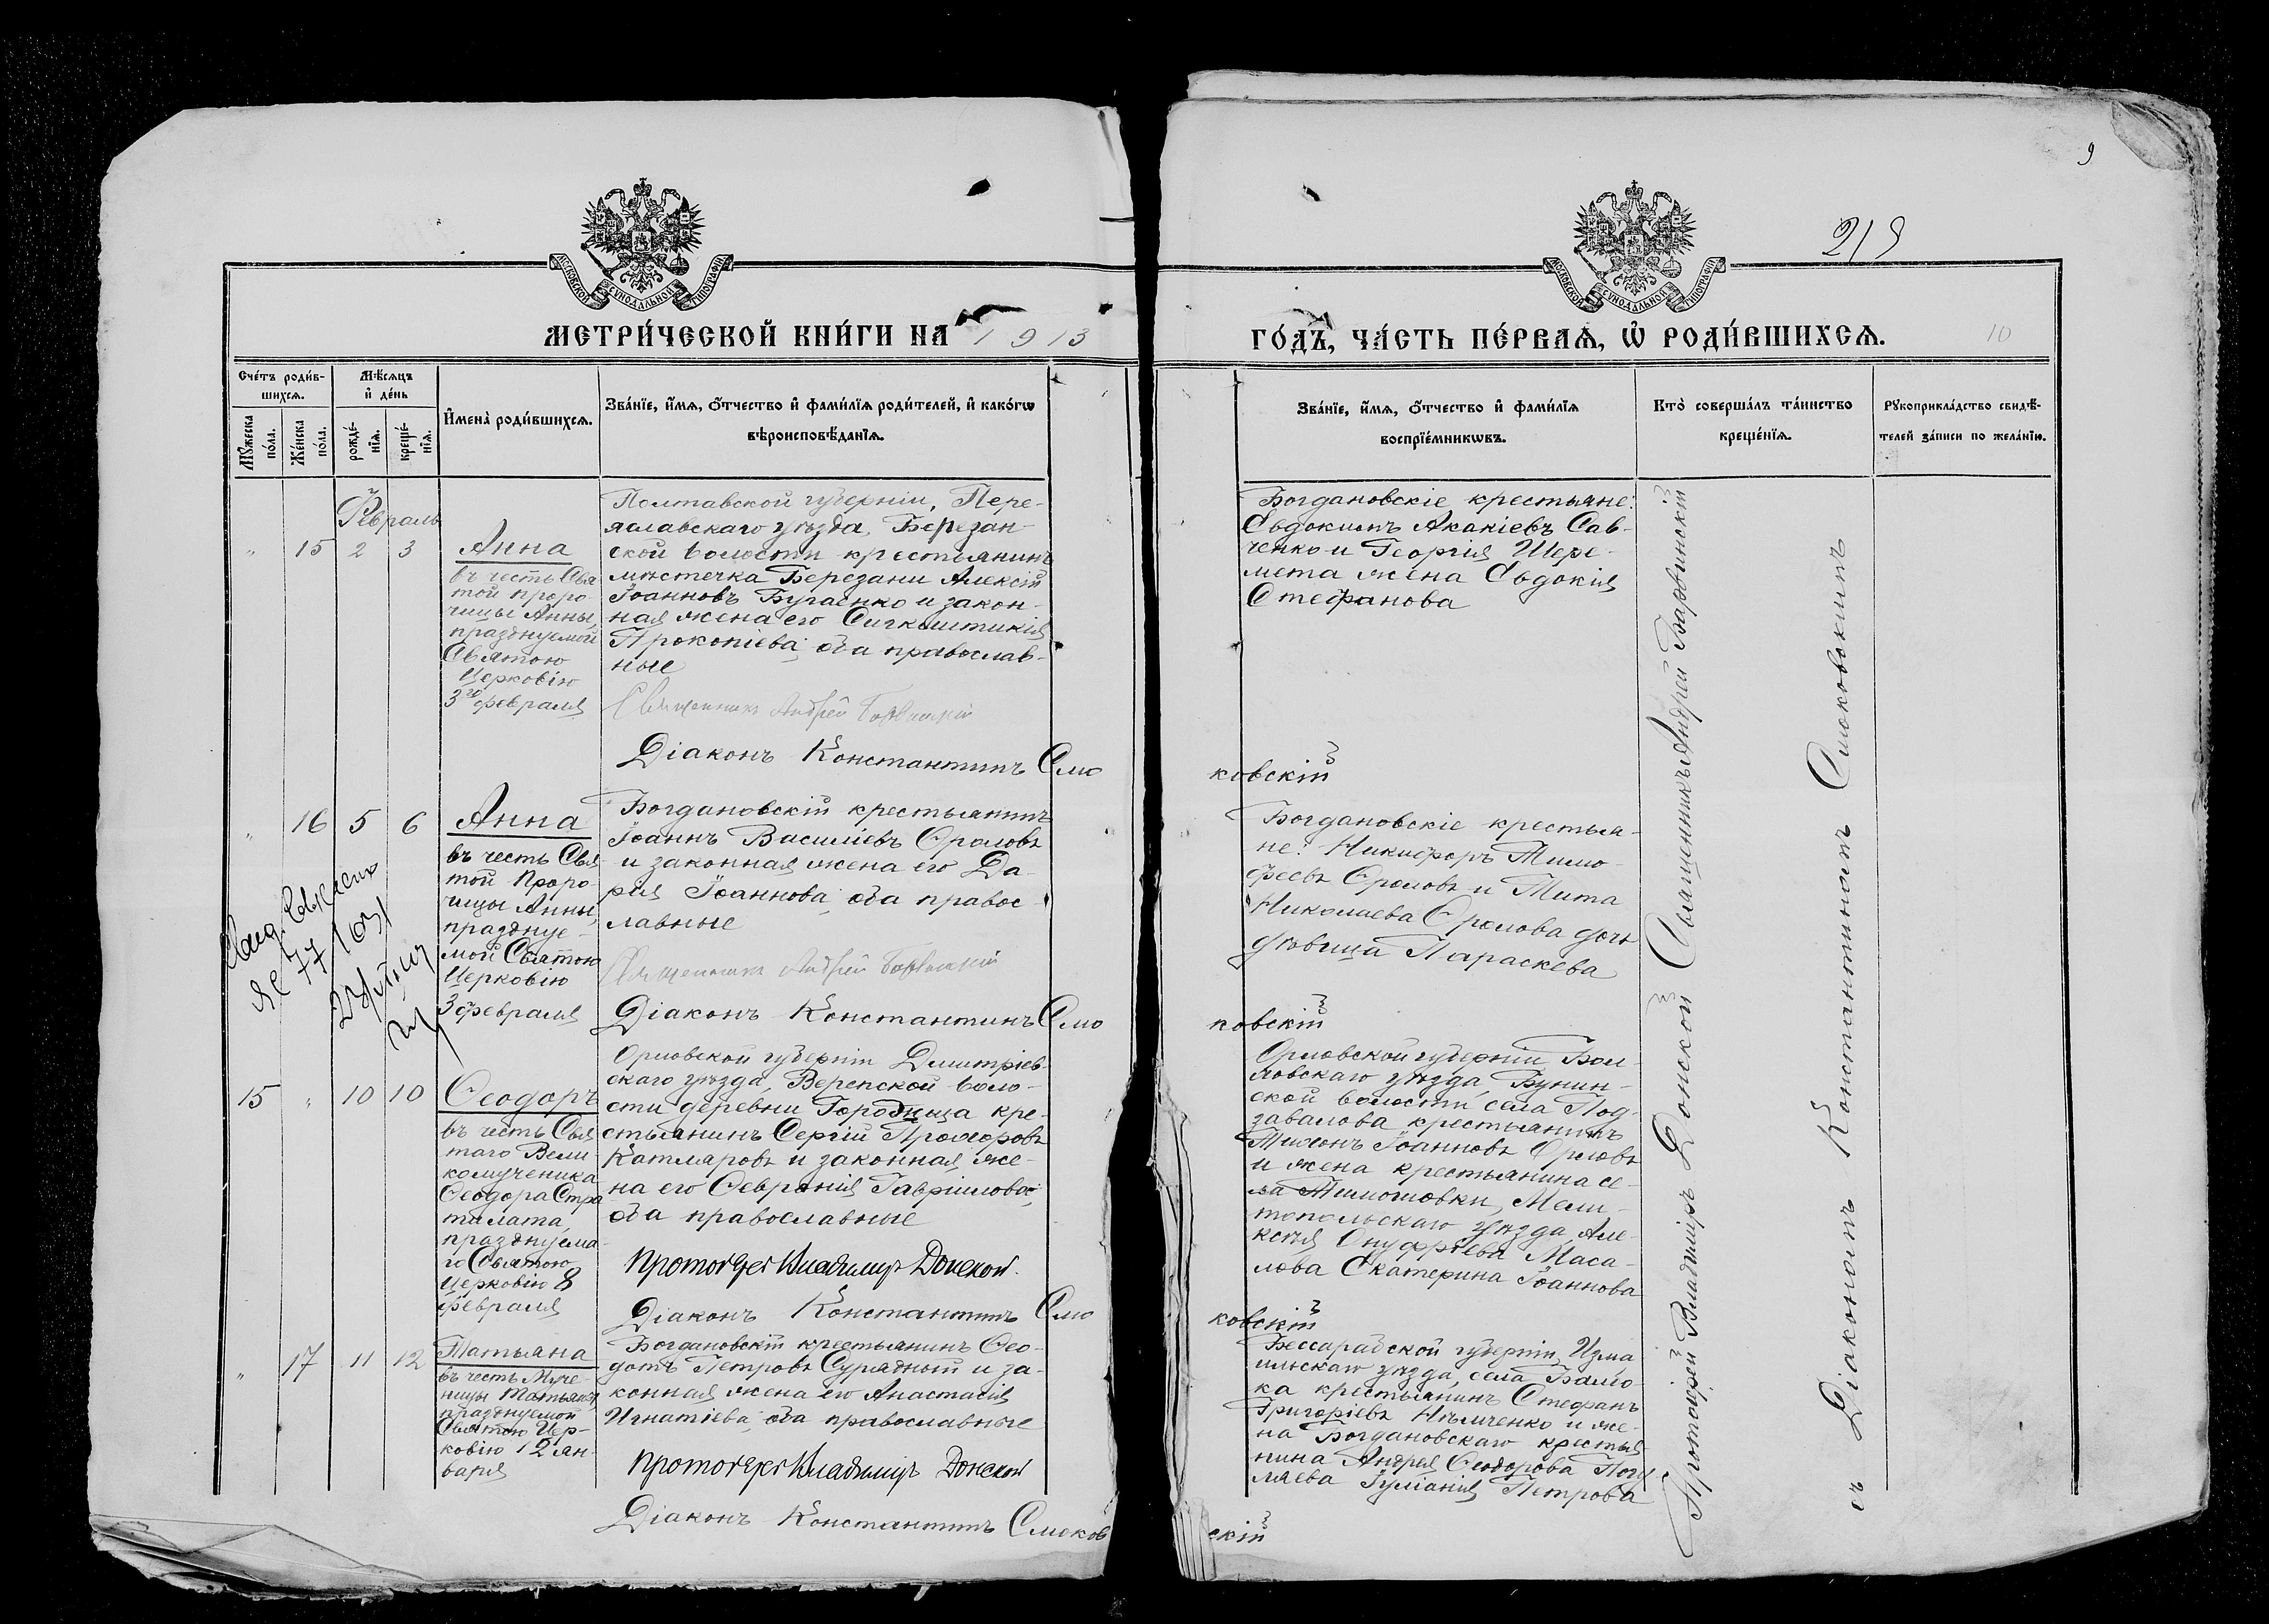 9
219
МОСКОВСКОЙ СѴНОДАЛЬНОЙ ТИПОГРАФІИ
МОСКОВСКОЙ СѴНОДАЛЬНОЙ ТИПОГРАФІИ
МЕТРИ́ЧЕСКОЙ КНИ́ГИ НА 1913
ГО́ДЪ, ЧА́СТЬ ПЕ́РВАѦ, Ѿ РОДИ́ВШИХСѦ.
10
Сче́тъ роди́в-
шихсѧ.
Мꙋ́жеска по́ла.
Же́нска по́ла.
Мѣ́сѧцъ
и҆ де́нь
рожде́-
нїѧ.
креще́-
нїѧ.
И҆мена̀ роди́вшихсѧ.
Зва́нїе, и҆́мѧ, ѻ҆́тчество и҆ фами́лїѧ роди́телей, и҆ како́гѡ
вѣроисповѣ́данїѧ.
Зва́нїе, и҆́мѧ, ѻ҆́тчество и҆ фами́лїѧ
воспрїе́мникѡвъ.
Кто̀ соверша́лъ та́инство
креще́нїѧ.
Рꙋкоприкла́дство свидѣ́-
телей за́писи по жела́нїю.
Февраль
" 15 2 3
Анна
въ честь Свя
той проро-
чицы Анны,
празднуемой
Святою
Церковію
3го февраля
Полтавской губерніи, Пере-
яславскаго уѣзда, Березан-
ской волости крестьянинъ
мѣстечка Березани Алексій
Іоанновъ Бугаенко и закон-
ная жена его
Прокопіева, оба православ-
ные
Священникъ Андрей
Діаконъ Константинъ Смо
ковскій
Богдановскіе крестьяне:
Евдокимъ Акакіевъ Сав-
ченко и Георгія Шере-
мета жена Евдокія
Стефанова
" 16 5 6
Анна
въ честь Свя
той Проро-
чицы Анны,
праздкуе-
мой Святою
Церковію
3 февраля
Богдановскій крестьянинъ
Іоаннъ Васильевъ Фроловъ
и законная жена его Да-
рія Іоаннова, оба правос-
лавные
Священникъ Андрей
Діаконъ Константинъ Смо
ковскій
Богдановскіе крестья-
не: Никифоръ Тимо-
феевъ Фроловъ и Тита
Николаева Фролова дочь
дѣвица Параскева
15 " 10 10
Ѳеодоръ
въ честь Свя
таго Вели-
комученика
Ѳеодора Стра
тилата,
празднуема-
го Святою
Церковію 8
февраля
Орловской губерніи Димитріев-
скаго уѣзда, Верепской воло-
сти деревни Городища кре-
стьянинъ Сергій Прохоровъ
Катляровъ и законная же-
на его Февронія Гавріилова,
оба православные
Протоіерей Владимиръ Донской.
Діаконъ Константинъ Смо
ковскій
Орловской губерніи Бол-
ховскаго уѣзда, Бунин-
ской волости села Под-
завалова крестьянинъ
Тихонъ Іоанновъ Орловъ
и жена крестьянина се-
ла Тимошовки, Мели-
топольскаго уѣзда, Але-
ксѣя Онуфріева Маса-
лова Екатерина Іоаннова
" 17 11 12
Татьяна
въ честь Муче-
ницы Татьяны,
празднуемой
Святою Цер-
ковію 12 ян-
варя
Богдановскій крестьянинъ Ѳео-
дотъ Петровъ Сурядный и за-
конная жена его Анастасія
Игнатіева, оба православные
Протоіерей Владимиръ Донской
Діаконъ Константинъ Смоков
скій
Бессарабской губерніи, Изма
ильскаго уѣзда, села
крестьянинъ Стефанъ
Григоріевъ Нѣмченко и же-
на Богдановскаго крестья-
нина Андрея Ѳеодорова
Іуліанія Петрова
Протоіерей Владиміръ Донской Священникъ Андрей
съ Діакономъ Константиномъ Смоковскимъ